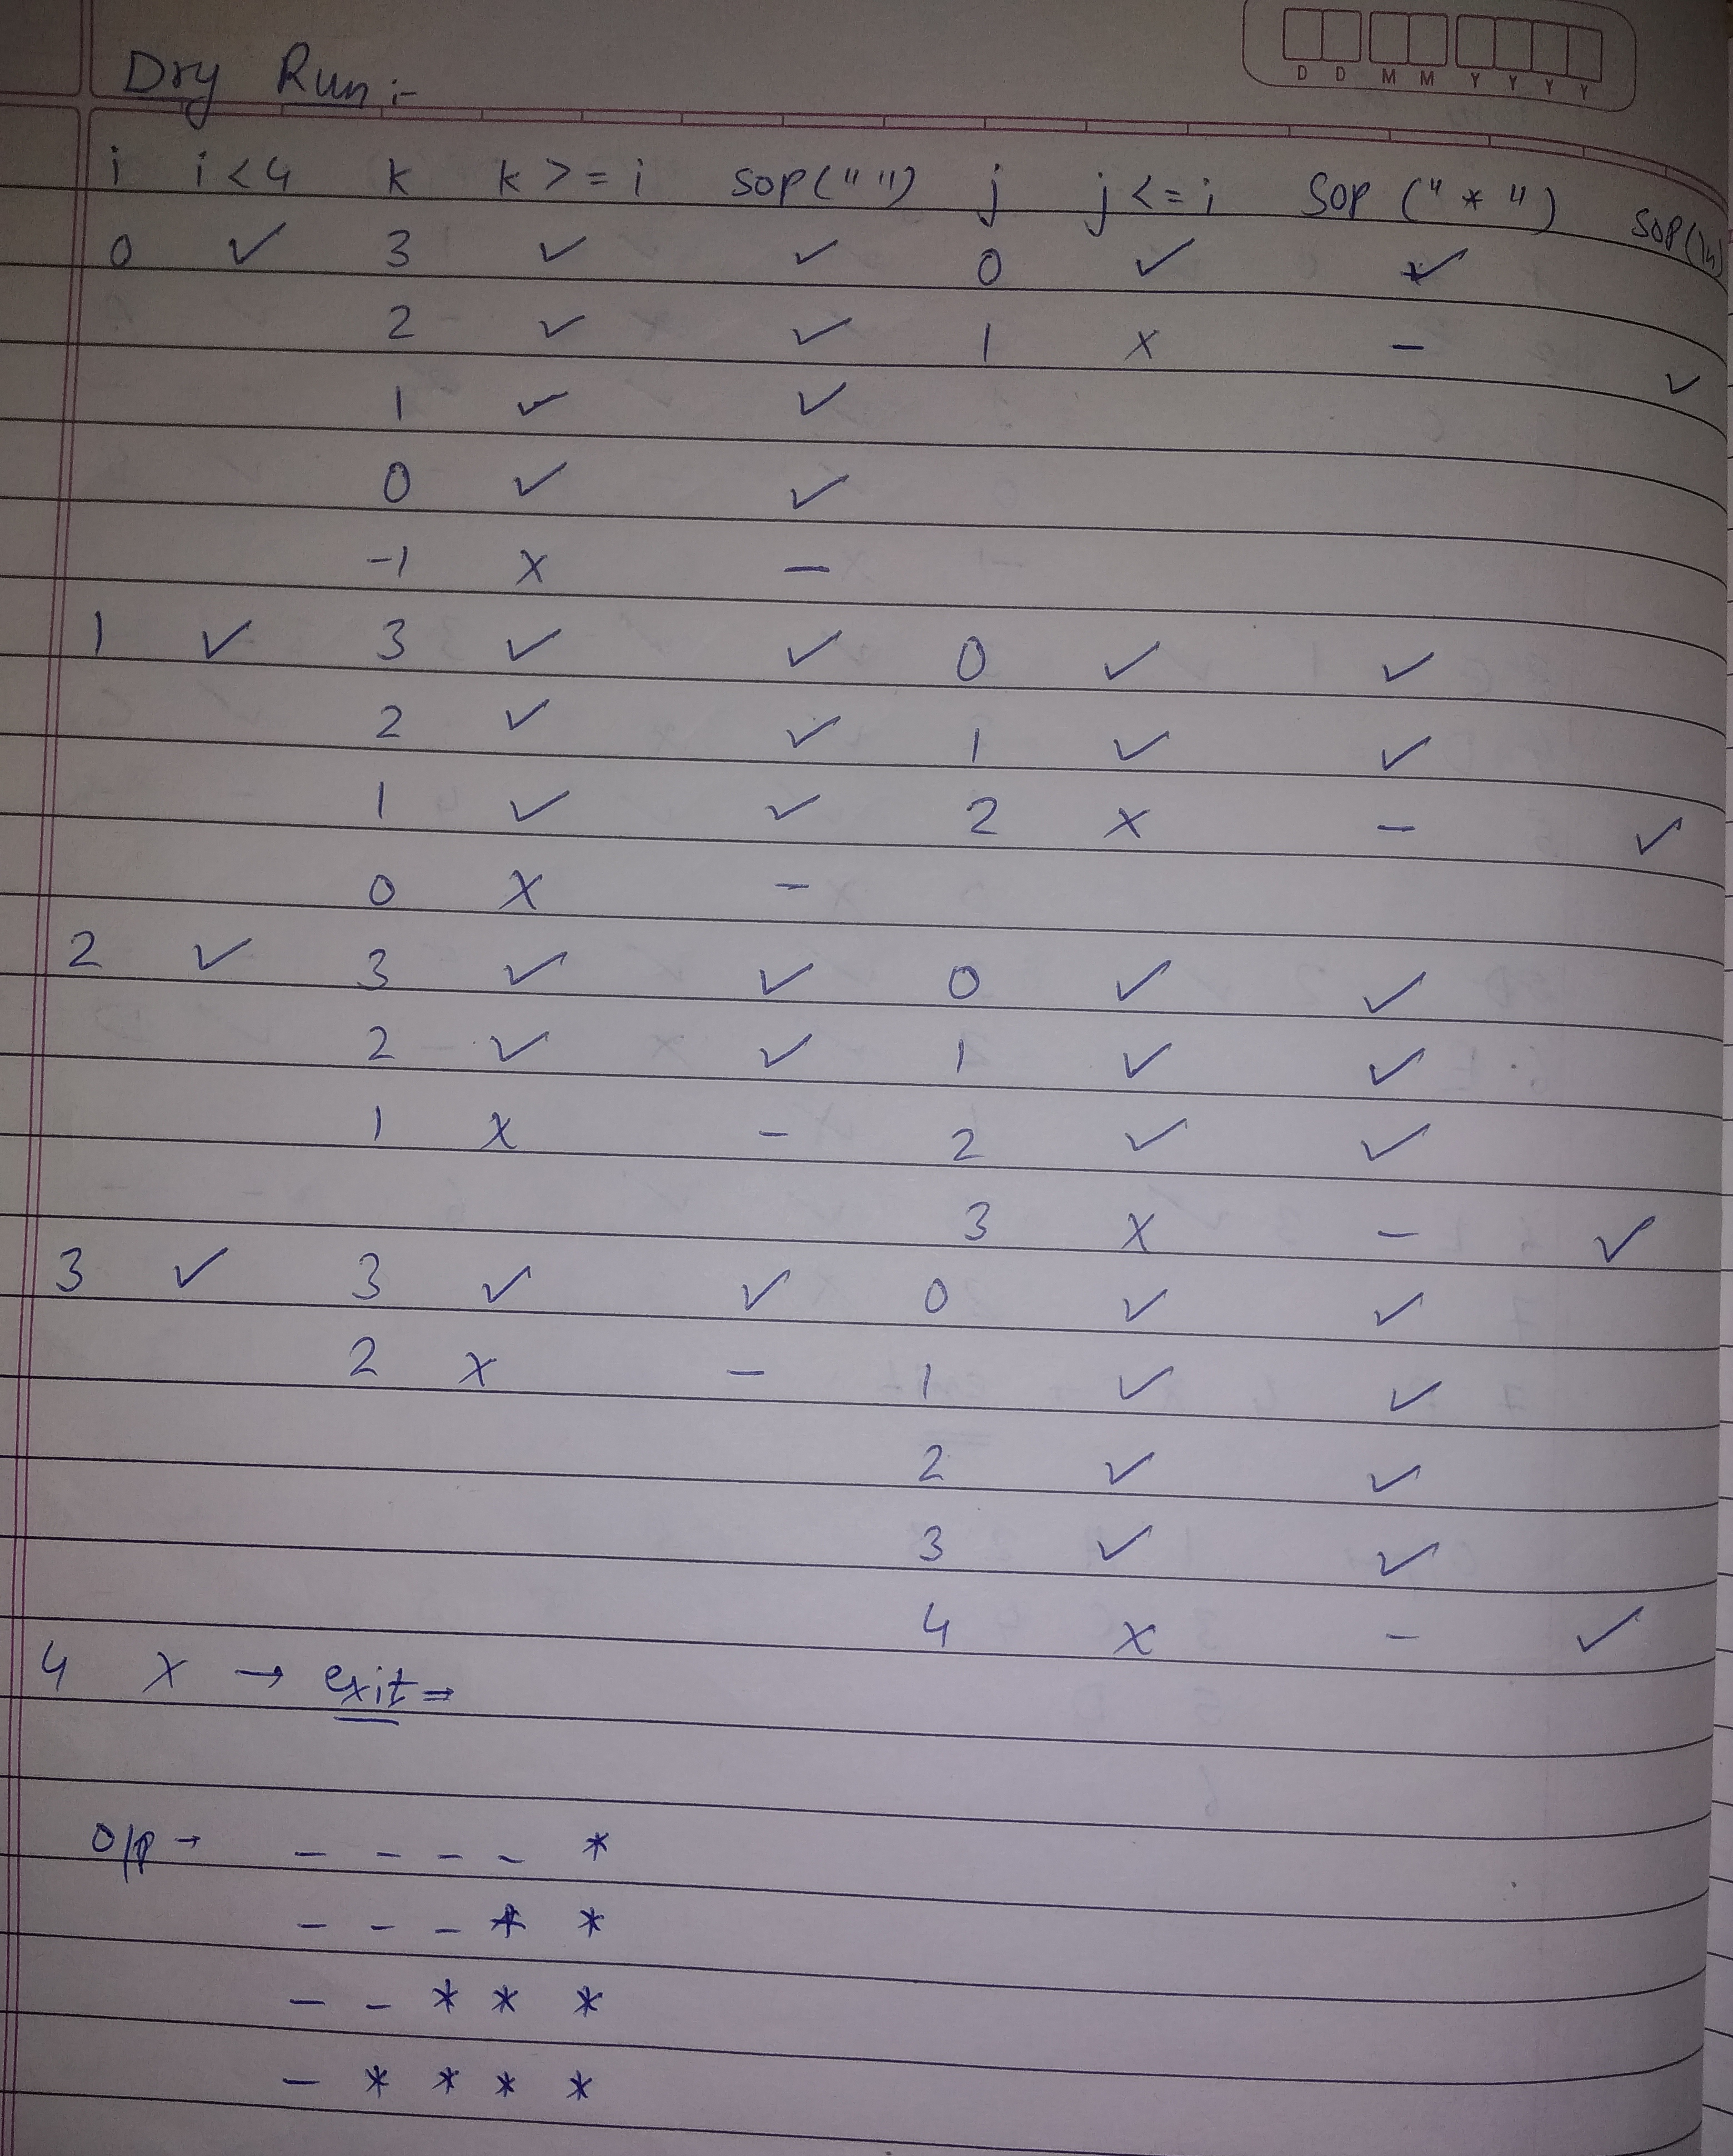 D D M M Y Y Y Y
Dry Run :-
i i<4 k k>=i SOP(" ") j j<=i SOP("*") SOP(ln)
0 ✓ 3 ✓ ✓ 0 ✓ ✓
2 ✓ ✓ 1 x - ✓
1 ✓ ✓
0 ✓ ✓
-1 x -
1 ✓ 3 ✓ ✓ 0 ✓ ✓
2 ✓ ✓ 1 ✓ ✓
1 ✓ ✓ 2 x - ✓
0 x -
2 ✓ 3 ✓ ✓ 0 ✓ ✓
2 ✓ ✓ 1 ✓ ✓
1 x - 2 ✓ ✓
3 x - ✓
3 ✓ 3 ✓ ✓ 0 ✓ ✓
2 x - 1 ✓ ✓
2 ✓ ✓
3 ✓ ✓
4 x - ✓
4 x → exit =
O/p → - - - - *
- - - * *
- - * * *
- * * * *